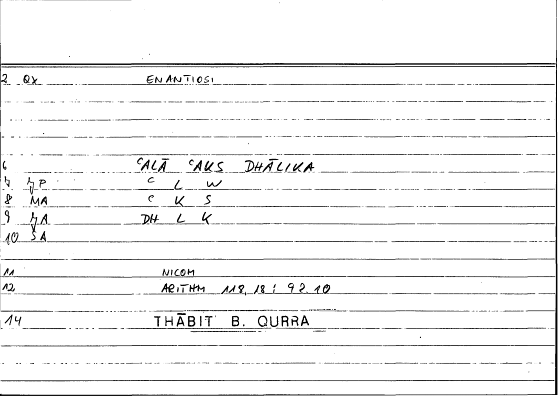 2 Qx ENANTIOSI
6 ʿALĀ ʿAKS DHĀLIKA
ʿ L W
8 MA ʿ K S
9 DH L K
10 SA
11 NICOM
12 ARITHM 118,18 : 92.10
14 THĀBIT B. QURRA